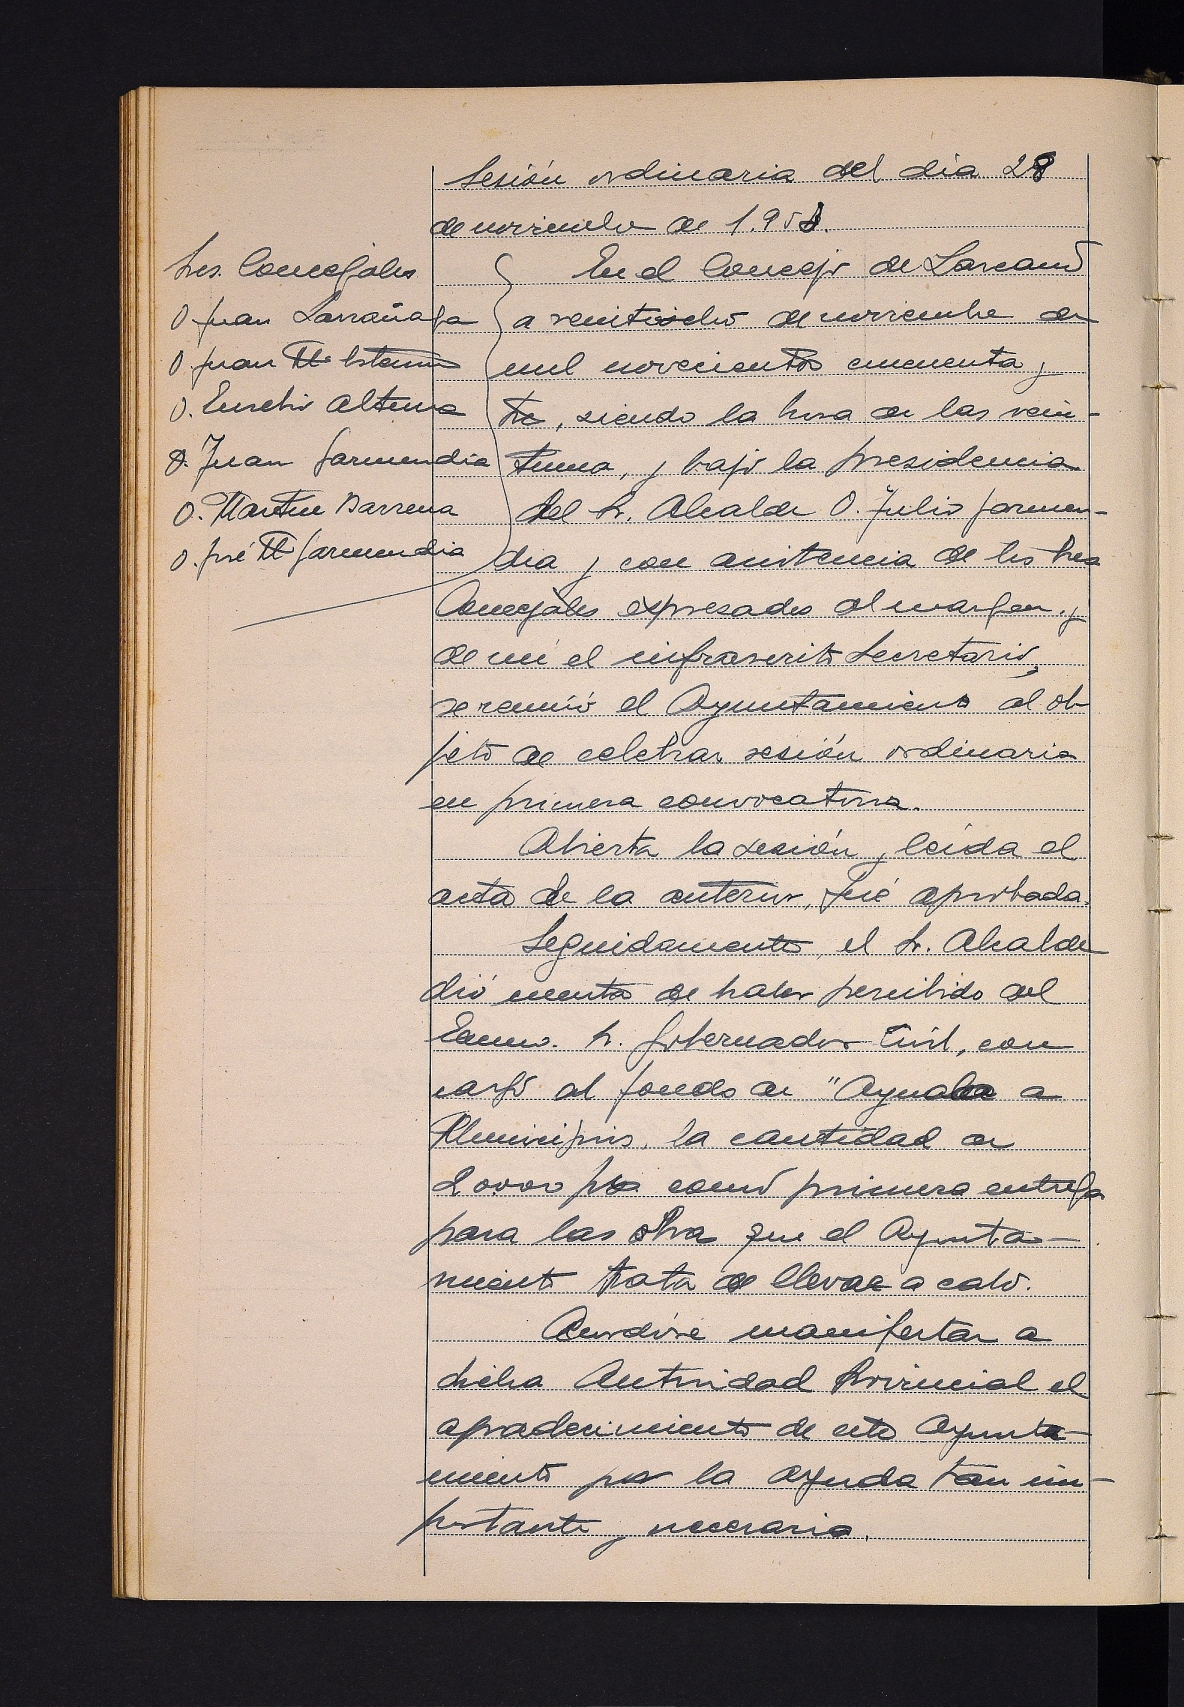 Sesión ordinaria del día 28
de noviembre de 1.953.
Sres. Concejales
D. Juan Larrañaga
D. Juan Mª
D. Eusebio Altuna
D. Juan Garmendia
D. Martin Barrena
D. José Mª Garmendia
En el Concejo de Lazcano
a veintiocho de noviembre de
mil novecientos cincuenta y
tres, siendo la hora de las vein-
tiuna, y bajo la presidencia
del Sr. Alcalde D. Julio Garmen-
dia y con asistencia de los Sres
Concejales expresados al margen, y
de mí el infrascrito Secretario,
se reunió el Ayuntamiento al ob-
jeto de celebrar sesión ordinaria
en primera convocatoria.
Abierta la sesión y leída el
acta de la anterior, fué aprobada.
Seguidamente, el Sr. Alcalde
dió cuenta de haber percibido del
Excmo. Sr. Gobernador Civil, con
cargo al fondo de "Ayuda a
Municipios, la cantidad de
pts como primera entrega
para las obras que el Ayunta-
miento trata de llevar a cabo.
Acordóse manifestar a
dicha Autoridad Provincial el
agradecimiento de este Ayunta-
miento por la ayuda tan im-
portante y necesaria.